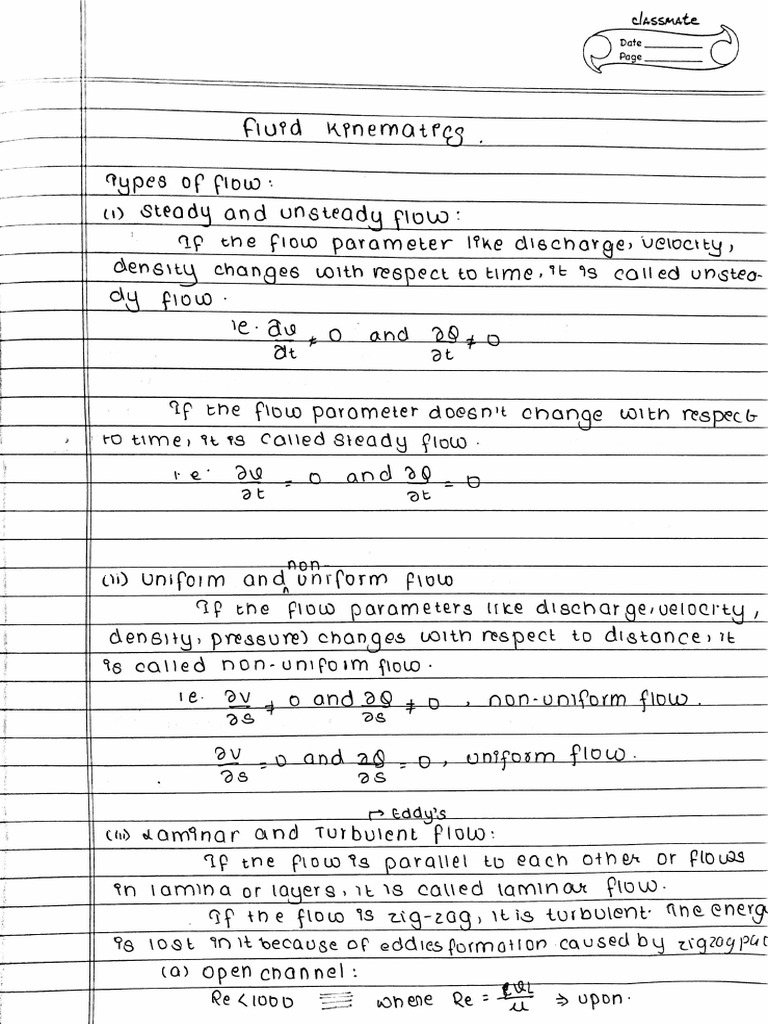 classmate
Date
Page
Fluid Kinematics.
Types of flow:
(i) Steady and unsteady flow:
If the flow parameter like discharge, velocity,
density changes with respect to time, it is called unstea-
dy flow.
ie. ∂v/∂t ≠ 0 and ∂Q/∂t ≠ 0
If the flow parameter doesn't change with respect
to time, it is called steady flow.
i.e. ∂v/∂t = 0 and ∂Q/∂t = 0
(ii) Uniform and non-uniform flow
If the flow parameters like discharge, velocity,
density, pressure) changes with respect to distance, it
is called non-uniform flow.
ie. ∂V/∂s ≠ 0 and ∂Q/∂s ≠ 0, non-uniform flow.
∂V/∂s = 0 and ∂Q/∂s = 0, uniform flow.
→ Eddy's
(iii) Laminar and Turbulent flow:
If the flow is parallel to each other or flows
in lamina or layers, it is called laminar flow.
If the flow is zig-zag, it is turbulent. The energ
is lost in it because of eddies formation caused by zigzag
(a) open channel:
Re < 1000 where Re = /μ ⇒ upon.